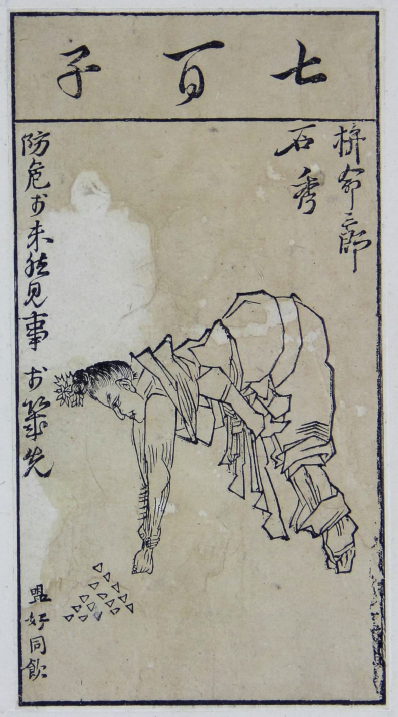 七百子
拚命三郎
石秀
防危於未然見事於幾先
盟好同飲